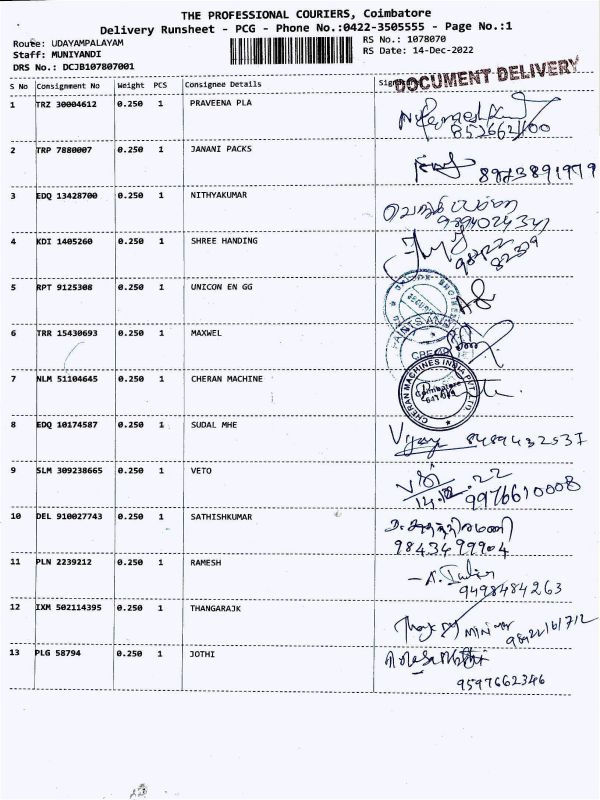 THE PROFESSIONAL COURIERS, Coimbatore
Delivery Runsheet - PCG - Phone No.:0422-3505555 - Page No.:1
Route: UDAYAMPALAYAM
RS No.: 1078070
Staff: MUNIYANDI
RS Date: 14-Dec-2022
DRS No.: DCJB107807001
DOCUMENT DELIVERY
S No Consignment No Weight PCS Consignee Details
1 TRZ 30004612 0.250 1 PRAVEENA PLA
2 TRP 7880007 0.250 1 JANANI PACKS
8973891979
3 EDQ 13428700 0.250 1 NITHYAKUMAR
4 KDI 1405260 0.250 1 SHREE HANDING
5 RPT 9125308 0.250 1 UNICON EN GG
6 TRR 15430693 0.250 1 MAXWEL
7 NLM 51104645 0.250 1 CHERAN MACHINE
CHERAN MACHINES INDIA PVT LTD.
Coimbatore
8 EDQ 10174587 0.250 1 SUDAL MHE
8489432537
9 SLM 309238665 0.250 1 VETO
14.12.22
9976610008
10 DEL 910027743 0.250 1 SATHISHKUMAR
9843699904
11 PLN 2239212 0.250 1 RAMESH
9498484263
12 IXM 502114395 0.250 1 THANGARAJK
13 PLG 58794 0.250 1 JOTHI
9597662346